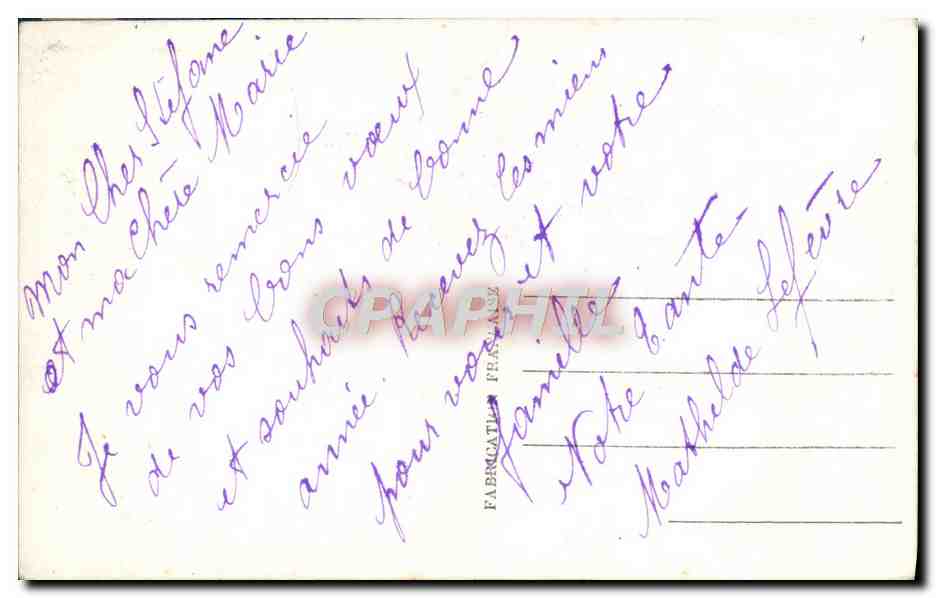 Mon Cher Stéfane
et ma Chère Marie
Je vous remercie
de vos bons vœux
et souhaits de bonne
année. Recevez les miens
pour vous et votre
famille
Votre Tante
Mathilde Lefèvre
FABRICATION FRANÇAISE
CPAPHIL